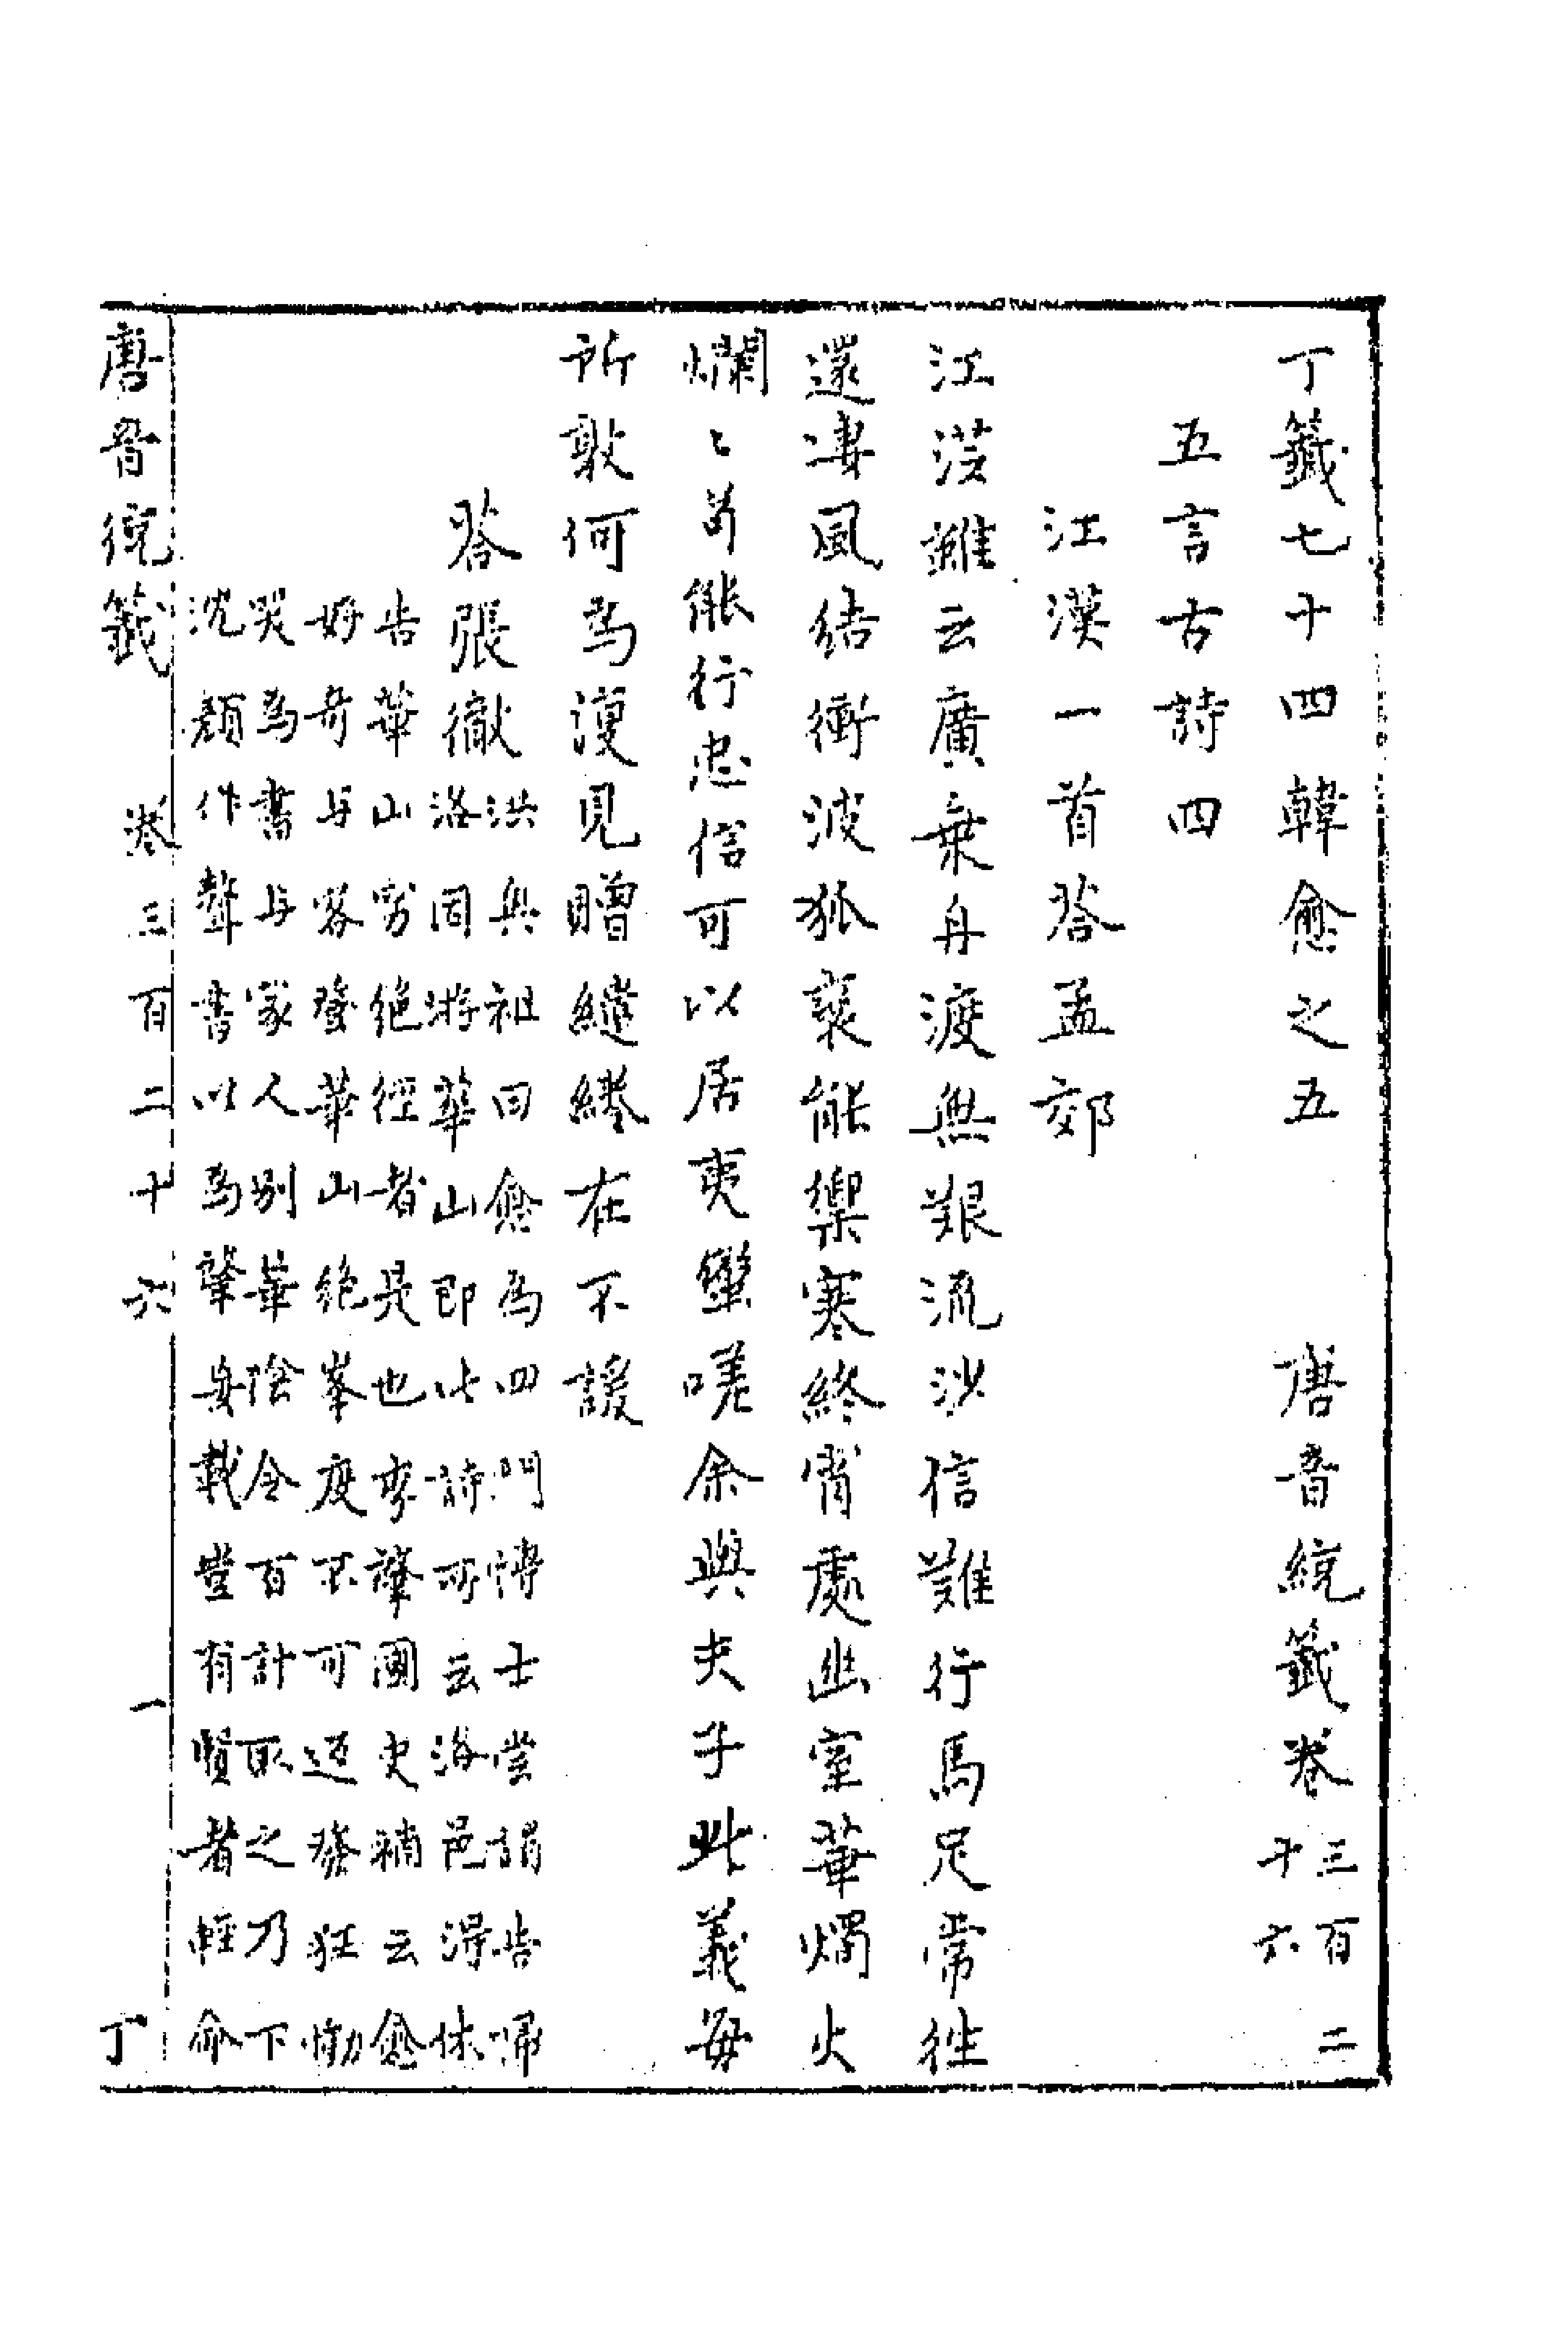 丁籤七十四韓愈之五 唐音統籤卷三百二十六
五言古詩四
江漢一首答孟郊
江漢雖云廣乗舟渡無艱流沙信難行馬足常徃
還淒風結衝波狐裘能禦寒終宵處幽室華燭火
爛〻苟能行忠信可以居夷蠻嗟余與夫子此義每
所敦何為復見贈繾綣在不諼
答張徹
洪興祖曰愈為四門博士嘗謁告歸
洛因游華山即此詩所云洛邑得休
告華山窮絶徑者是也李肇國史補云愈
好奇与客登華山絶峯度不可返發狂慟
哭為書与家人别華陰令百計取之乃下
沈顔作聱書以為肇妄載豈有賢者輕命
唐音統籤 卷三百二十六 一 丁